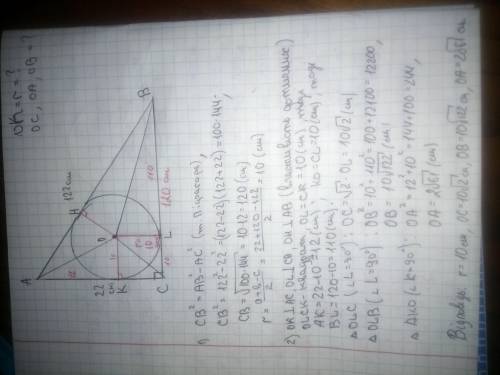 OK = r = ?
OC, OA, OB = ?
A
122 см
H
B
12
22 см
O
10
110
K
r
10
C
10
L
120 см
1) CB² = AB² − AC² (т. Піфагора),
CB² = 122² − 22² = (122−22)(122+22) = 100·144;
CB = √100·144 = 10·12 = 120 (см)
r = (a+b−c)/2 = (22+120−122)/2 = 10 (см)
2) OK⊥AC, OL⊥CB, OH⊥AB (властивість дотичної)
OLCK - квадрат, OL = CK = 10 (см), тоді
AK = 22−10 = 12 (см); KO = CL = 10 (см), тоді
BL = 120−10 = 110 (см).
△OLC (∠L=90°): OC = √2·OL = 10√2 (см)
△OLB (∠L=90°): OB² = 10²+110² = 100+12100 = 12200,
OB = 10√122 (см)
△AKO (∠K=90°): OA² = 12²+10² = 144+100 = 244,
OA = 2√61 (см)
Відповідь: r = 10 см, OC = 10√2 см, OB = 10√122 см, OA = 2√61 см